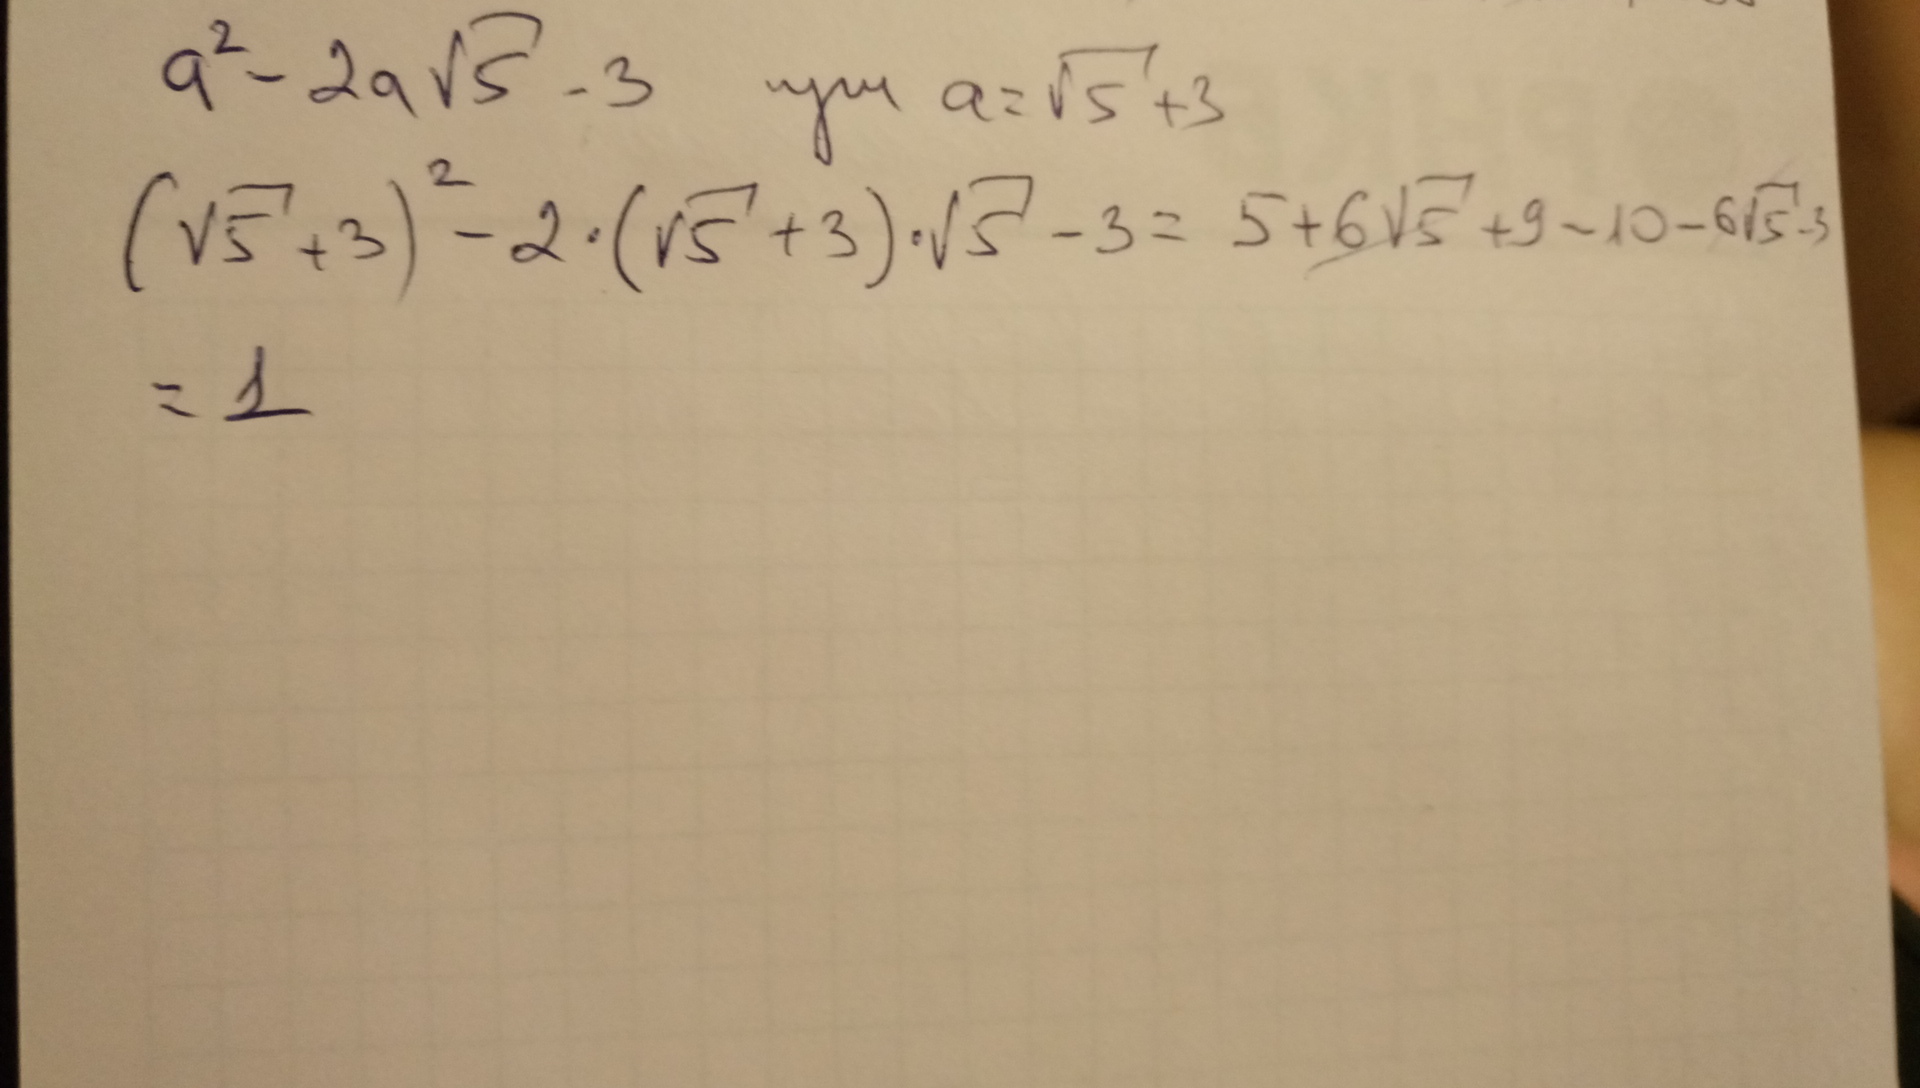 a² - 2a√5 - 3 при a = √5 + 3
(√5 + 3)² - 2·(√5 + 3)·√5 - 3 = 5 + 6√5 + 9 - 10 - 6√5 - 3
= 1